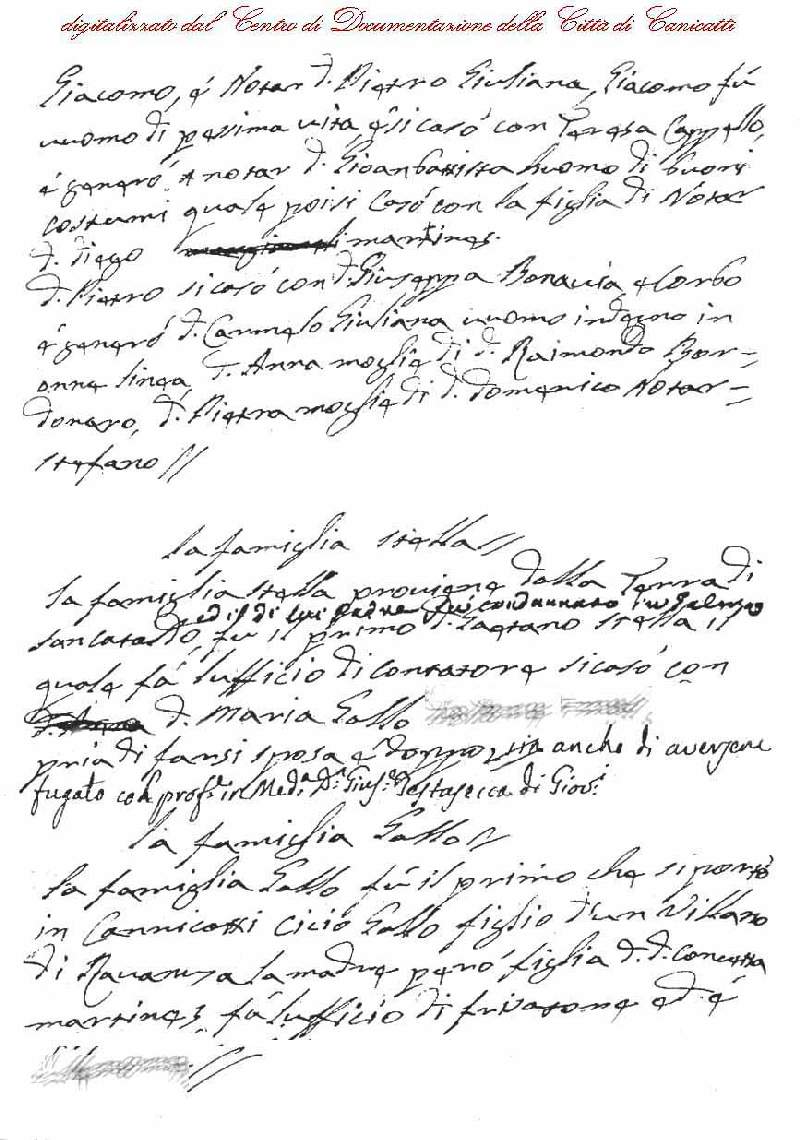 digitalizzato dal Centro di Documentazione della Città di Canicattì
Giacomo, é Notar d. Pietro Giuliana, Giacomo fú
uuomo di pessima uita, é si casó con Teresa Cappello,
é generó notar d. Gioanbattista huomo di buoni
costumi quale poi si Casó con la figlia di Notar
d. diego martines.
d. Pietro si casó con d. Giuseppa Bonauia, e Corbo
é generó d. Carmelo Giuliana uuomo indegno in
onne linea, d. Anna moglie di d. Raimondo Bor=
donaro, d. Pietra moglie di d. domenico Notar=
stefano //
la famiglia stella //
la famiglia stella prouiene dalla Terra di
ed il di lui Padre fu condannato in
sancataldo, fu il primo d. Gaetano stella il
quale fá l'ufficio di contatore si casó con
d. Maria Gallo
pria di farsi sposa é doppo anche di auersene
fugato col prof.r in Med.a D.r Gius.e Testasecca di Giov.i
la famiglia Gallo //
la famiglia Gallo fú il primo che si portó
in Cannicatti Cició Gallo figlio d'un Villano
di Rauanusa la madre peró figlia d. d. Concetta
martines fá l'ufficio di ed é